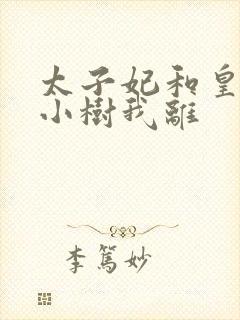 太子妃和皇
小樹我離
李篤妙